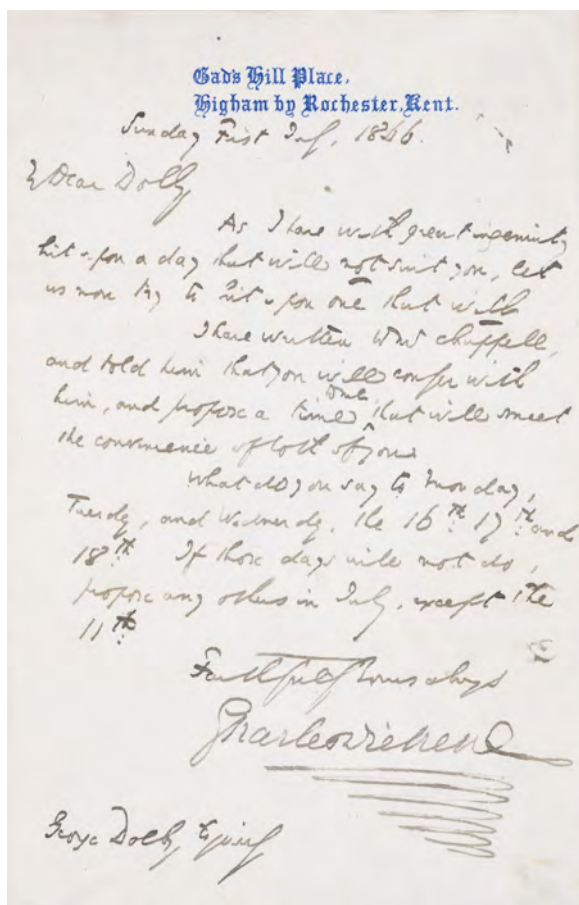 Gad's Hill Place,
Higham by Rochester, Kent.
Sunday First July, 1866.
My Dear Dolby
As I have with great ingenuity
hit upon a day that will not suit you, let
us now try to hit upon one that will
I have written Tom Chappell,
and told him that you will confer with
him, and propose a time that will meet
the convenience of both of you.
What do you say to Monday,
Tuesday, and Wednesday, the 16th. 17th. and
18th. If those days will not do,
propose any others in July, except the
11th.
Faithfully Yours always
Charles Dickens
George Dolby Esquire